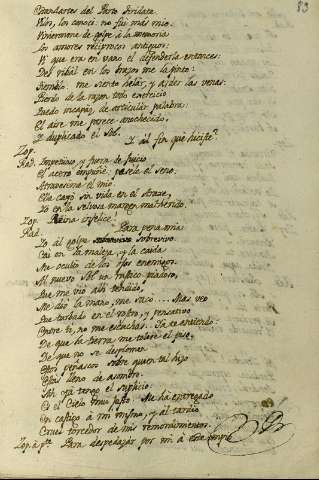 83
Estandartes del Parto Aridata.
Vilos, los conocí: no fuí más mio.
Vinieronme de golpe á la memoria
Los amores recíprocos antiguos:
Vi que era en vano el defenderla entonces:
Del rival en los brazos me la pinto:
Tiemblo: me siento helar, y arder las venas:
Pierdo de la razon todo exercicio
Quedo incapaz de articular palabra:
El aire me parece anochecido,
Y duplicado el Sol.
Zop. Y al fin qué hiciste?
Rad. Impetuoso y fuera de juicio
El acero empuñé, pasela el seno.
Atraveséme el mio
Ella cayó sin vida en el Araxe,
Yo en la selvosa margen mal herido.
Zop. Reina infelice!
Rad. Para pena mia
Yo al golpe sobrevivo
Caí en la maleza, y la caida
Me ocultó de los fieros enemigos.
Al nuevo Sol un rustico piadoso,
Que me vió allí tendido,
Me dió la mano, me sacó.... Mas veo
Que turbado en el rostro, y pensativo
Entre ti, no me escuchas. Ya te entiendo.
De que la tierra, me tolere el peso,
De que no se desploman
Esos peñascos sobre quien tal hizo
Estás lleno de asombro.
Ah ya tengo el suplicio.
Es el Cielo muy justo. Me ha entregado
En castigo á mi mismo, y al tirano
Cruel torcedor de mis remordimientos.
Zop. á pte. Para despedazar por mi á este impío